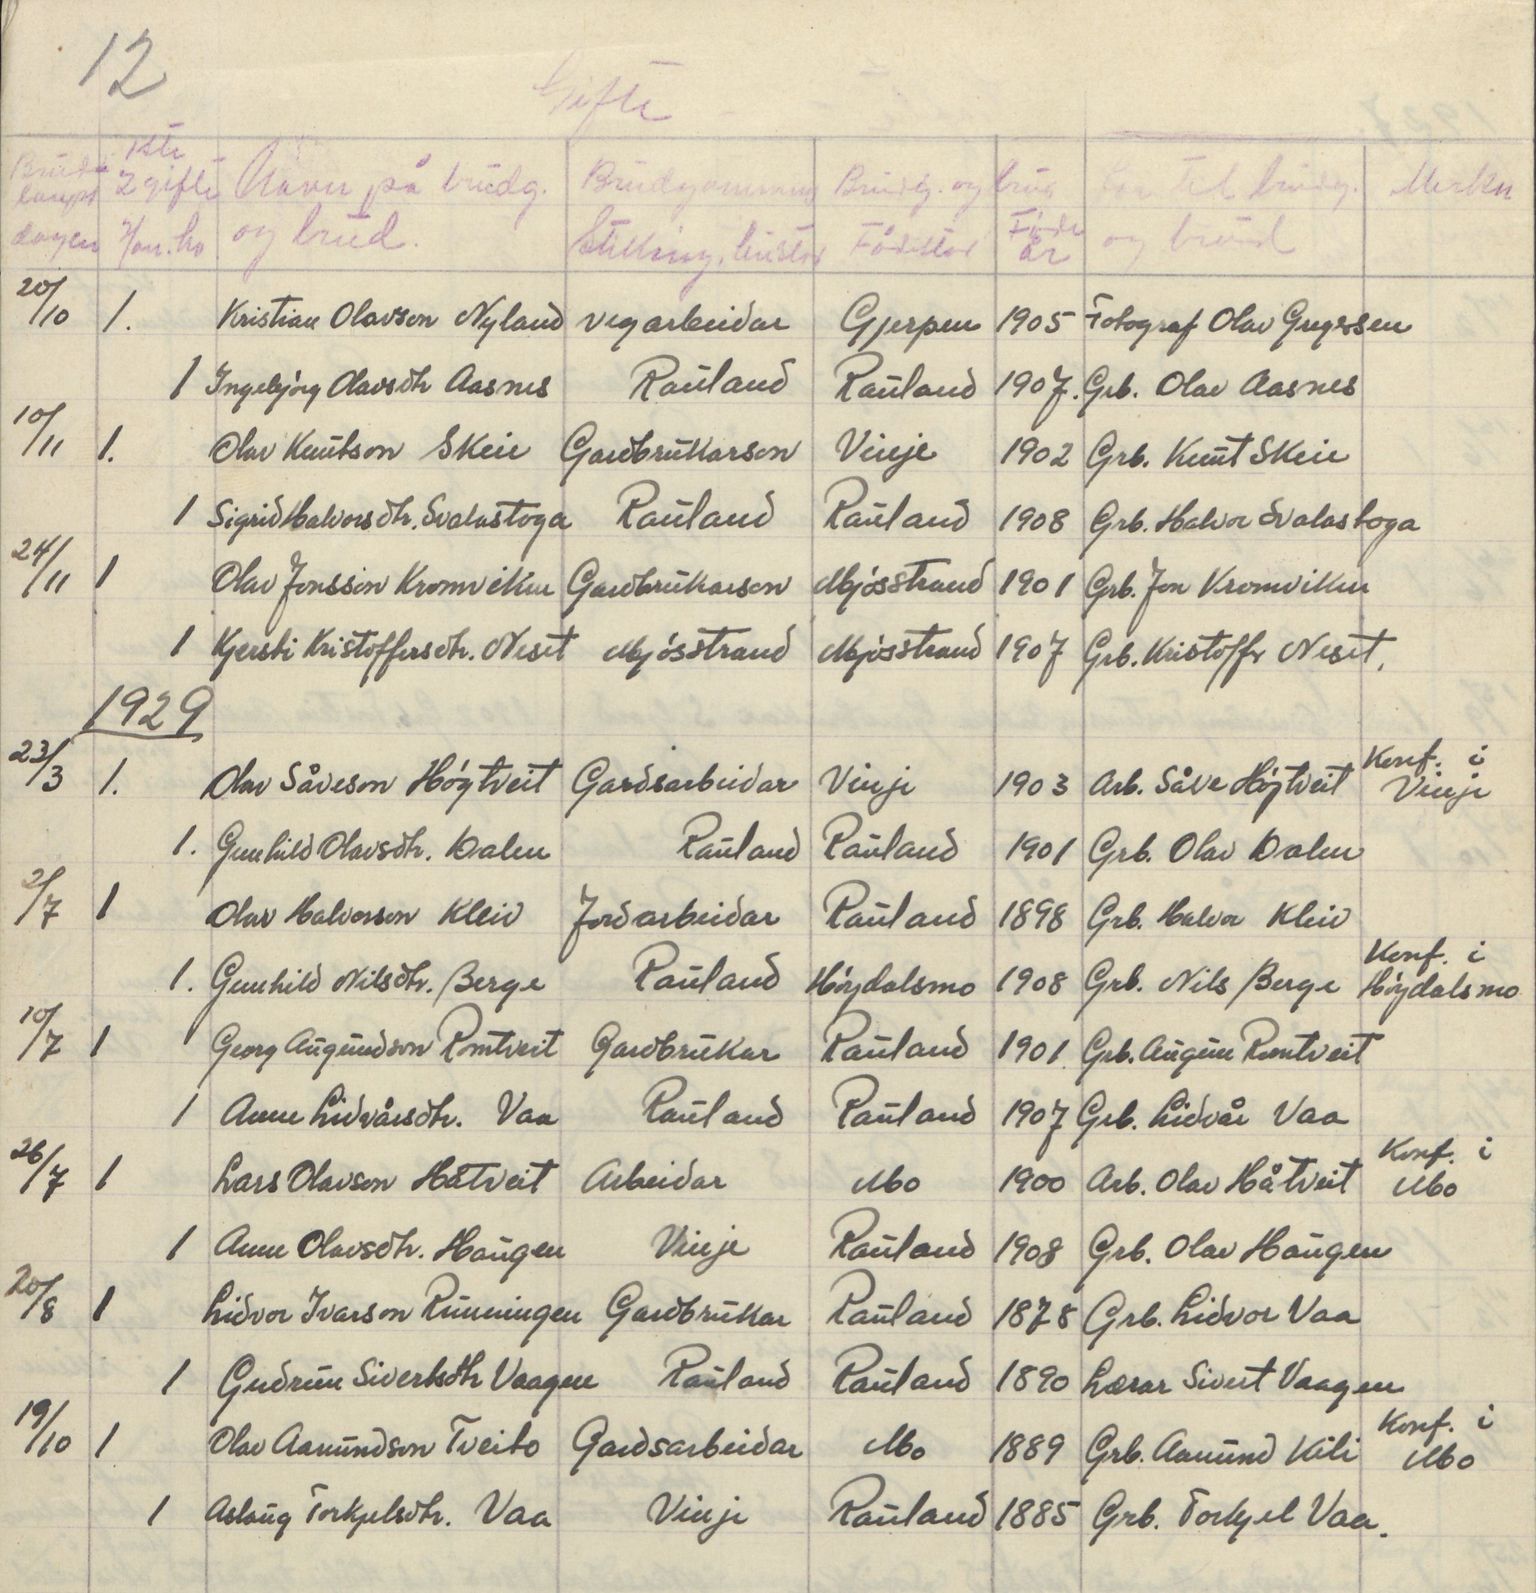 12
Gifte
Brudlaups dagen 1ste 2 gifte Han. ho Navn på brudg. og brud. Brudgommens Stilling, bustad Brudg. og brud Fødestad Føde år Far til brudg. og brud Merkn
20/10 1. Kristian Olavson Nyland vegarbeidar Gjerpen 1905 Fotograf Olav Gregersen
1 Ingebjørg Olavsdtr Aasnes Rauland Rauland 1907. Grb. Olav Aasnes
10/11 1. Olav Knutson Skeie Gardbrukarson Vinje 1902 Grb. Knut Skeie
1 Sigrid Halvorsdtr. Svalastoga Rauland Rauland 1908 Grb. Halvor Svalastoga
24/11 1 Olav Jonsson Kromviken Gardbrukarson Møsstrand 1901 Grb. Jon Kromviken
1 Kjersti Kristoffersdtr. Neset Møsstrand Møsstrand 1907 Grb. Kristoffer Neset.
1929
23/3 1. Olav Såveson Høgtveit Gardsarbeidar Vinje 1903 Arb. Såve Høgtveit Konf. i Vinje
1. Gunhild Olavsdtr. Dalen Rauland Rauland 1901 Grb. Olav Dalen
2/7 1 Olav Halvorson Kleiv Jordarbeidar Rauland 1898 Grb. Halvor Kleiv
1. Gunhild Nilsdtr. Berge Rauland Høydalsmo 1908 Grb. Nils Berge Konf. i Høydalsmo
10/7 1 Georg Augundson Romtveit Gardbrukar Rauland 1901 Grb. Augun Romtveit
1 Anne Lidvårsdtr. Vaa Rauland Rauland 1907 Grb. Lidvår Vaa
26/7 1 Lars Olavson Håtveit Arbeidar Mo 1900 Arb. Olav Håtveit Konf. i Mo
1 Anne Olavsdtr. Haugen Vinje Rauland 1908 Grb. Olav Haugen
20/8 1 Lidvor Ivarson Runningen Gardbrukar Rauland 1878 Grb. Lidvor Vaa
1 Gudrun Sivertsdtr Vaagen Rauland Rauland 1890 Lærar Sivert Vaagen
19/10 1 Olav Aamundson Tveito Gardsarbeidar Mo 1889 Grb. Aamund Kili Konf. i Mo
1 Aslaug Torkjelsdtr. Vaa Vinje Rauland 1885 Grb. Torkjel Vaa.